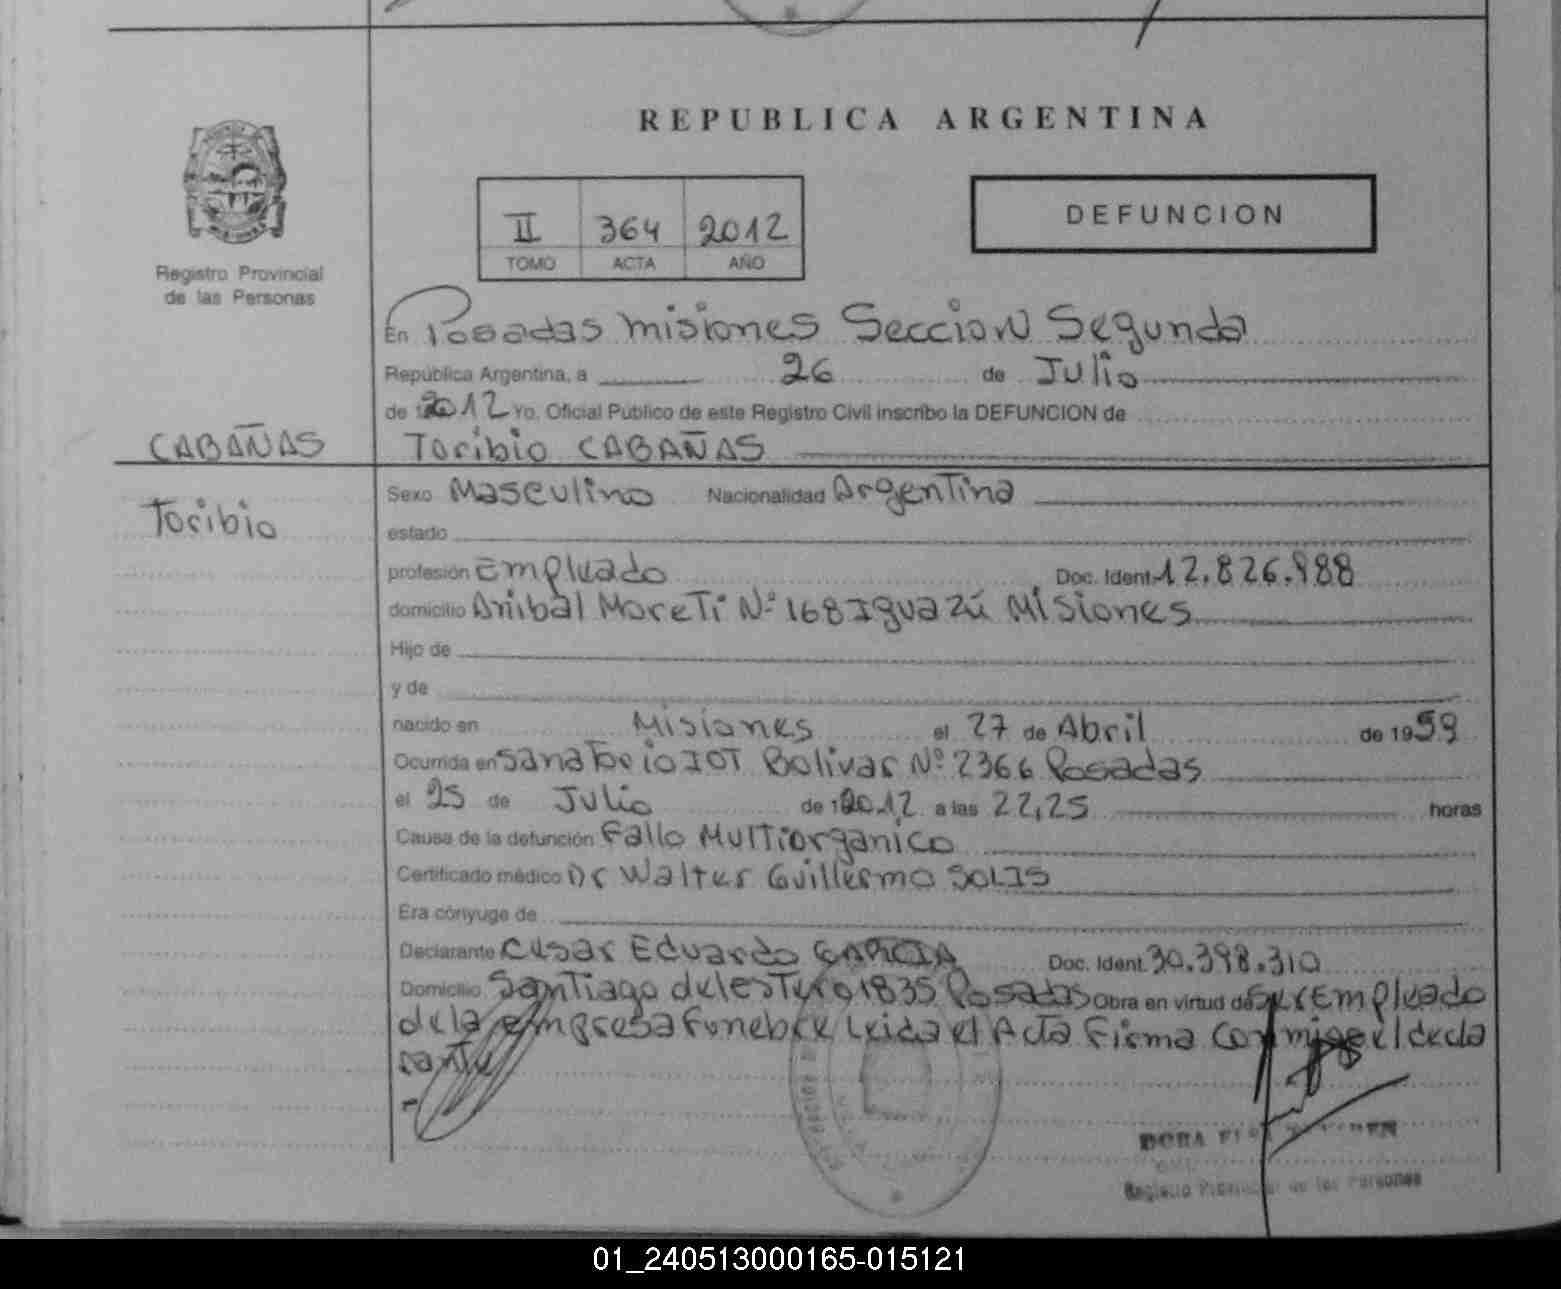 REPUBLICA ARGENTINA
II 364 2012
TOMO ACTA AÑO
DEFUNCION
Registro Provincial
de las Personas
En Posadas Misiones Sección Segunda
República Argentina, a 26 de Julio
de 2012 Yo, Oficial Público de este Registro Civil inscribo la DEFUNCION de
CABAÑAS
Toribio CABAÑAS
Toribio
Sexo Masculino Nacionalidad Argentina
estado
profesión Empleado Doc. Ident. 12.826.988
domicilio Anibal Moreti Nº 168 Iguazú Misiones
Hijo de
y de
nacido en Misiones el 27 de Abril de 1959
Ocurrida en Sanatorio IOT Bolivar Nº 2366 Posadas
el 25 de Julio de 2012 a las 22,25 horas
Causa de la defunción Fallo Multiorganico
Certificado médico Dr Walter Guillermo SOLIS
Era cónyuge de
Declarante Cesar Eduardo GARCIA Doc. Ident. 30.398.310
Domicilio Santiago del estero 1835 Posadas Obra en virtud de ser Empleado
de la empresa Funebre Leida el Acta Firma conmigo el decla
rante
DORA
Registro Provincial de las Personas
01_240513000165-015121